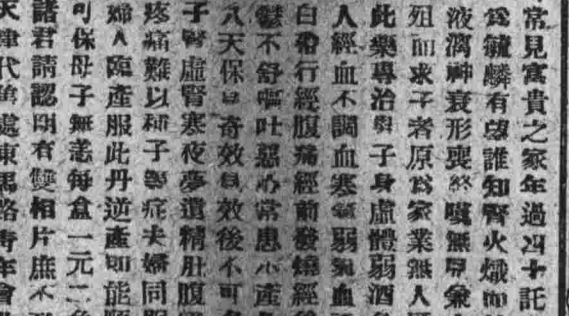 常見富貴之家年過四十託
為毓麟有望誰知腎火熾而
液涸神衰形喪終嘆無兒
殂而求子者原為家業無人
此藥專治男子身虛體弱酒
人經血不調血寒氣弱氣血
白帶行經腹痛經前發燒經後
鬱不舒嘔吐惡心常患小產
八天保日奇效見效後不可
子腎虛腎寒夜夢遺精肝腹
疼痛難以種子等症夫婦同服
婦人臨產服此丹逆產即能順
可保母子無恙每盒一元二角
諸君請認明有雙相片庶不
天津代售處東馬路青年會